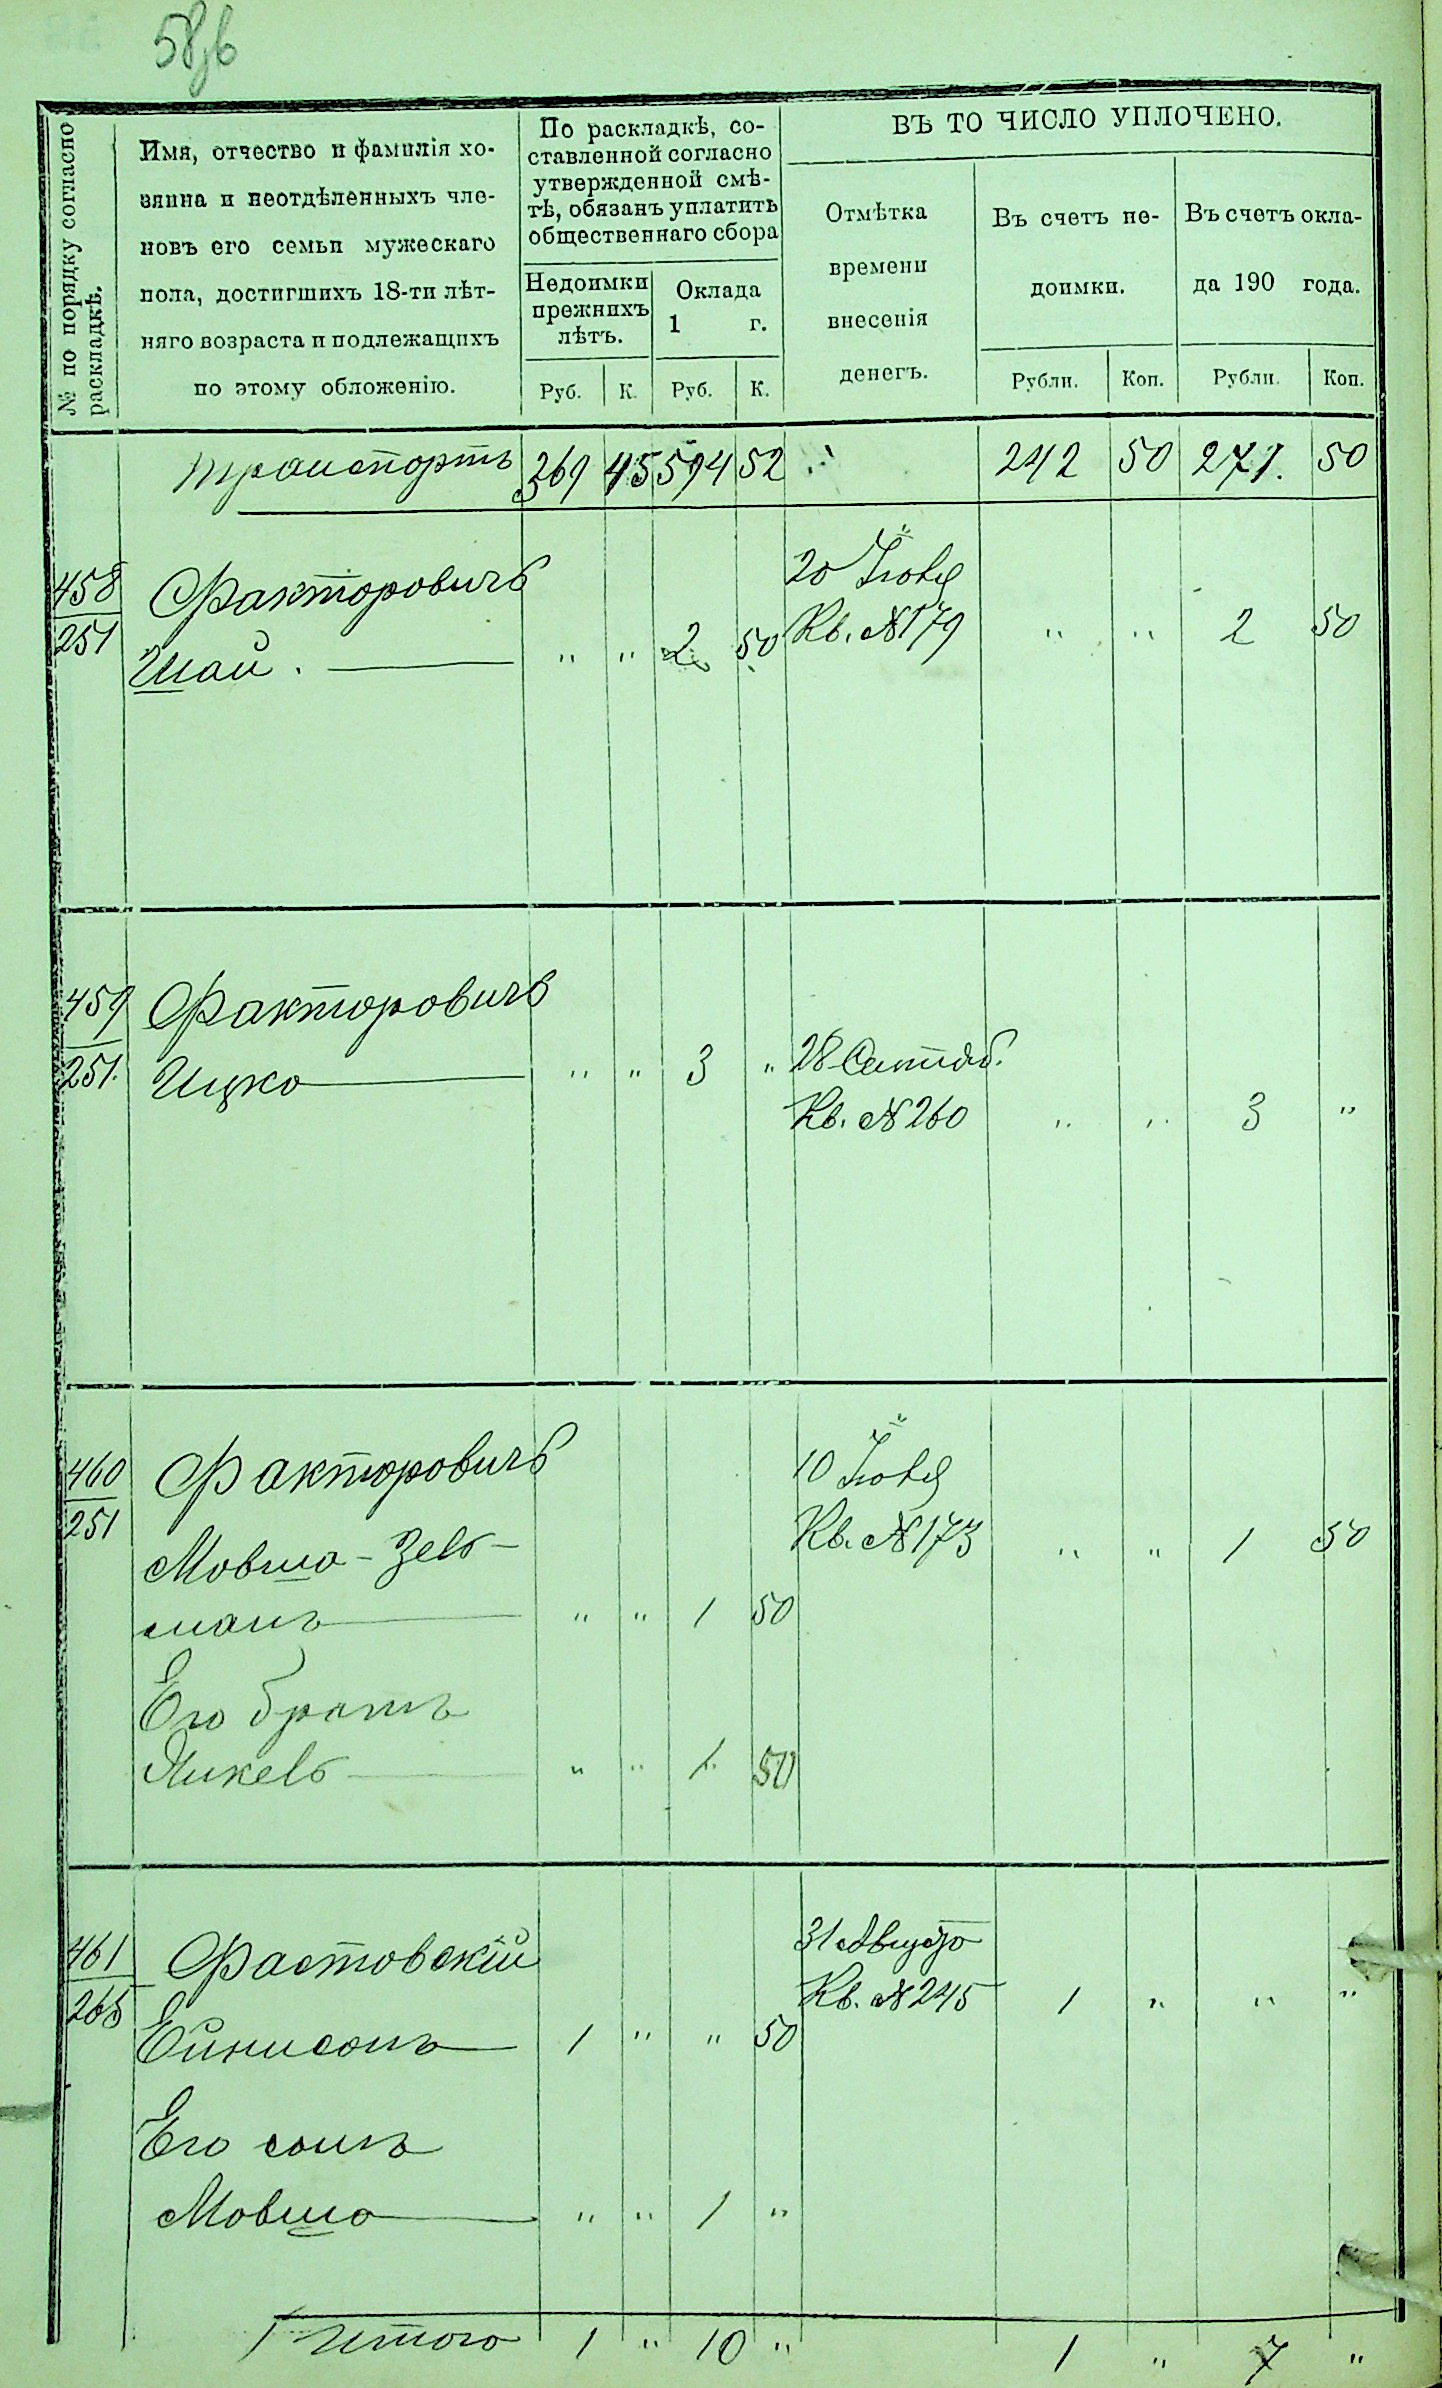 58 об
№ по порядку согласно
раскладкѣ.
Имя, отчество и фамилія хо-
зяина и неотдѣленныхъ чле-
новъ его семьи мужескаго
пола, достигшихъ 18-ти лѣт-
няго возраста и подлежащихъ
по этому обложенію.
По раскладкѣ, со-
ставленной согласно
утвержденной смѣ-
тѣ, обязанъ уплатить
общественнаго сбора
Недоимки
прежнихъ
лѣтъ.
Оклада
1 г.
Руб. К. Руб. К.
ВЪ ТО ЧИСЛО УПЛОЧЕНО.
Отмѣтка
времени
внесенія
денегъ.
Въ счетъ не-
доимки.
Въ счетъ окла-
да 190 года.
Рубли. Коп. Рубли. Коп.
Транспортъ 369 45 594 52 " 242 50 271. 50
458 Факторовичъ 20 Іюня
251 Шай. " " 2 50 Кв. №179 " " 2 50
459 Факторовичъ
251. Ицко " " 3 " 28 Сентяб.
Кв. №260 " " 3 "
460 Факторовичъ 10 Іюня
251 Кв. №173 " " 1 50
Мовша-Зель-
манъ " " 1 50
Его братъ
Янкель " " 1 50
461 Фастовскій 31 Августа
265 Кв. №245 1 " " "
Ейнисонъ 1 " " 50
Его сынъ
Мовша " " 1 "
Итого 1 " 10 " 1 " 7 "